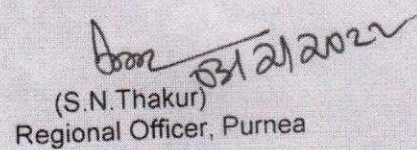 03/2/2022
(S.N.Thakur)
Regional Officer, Purnea